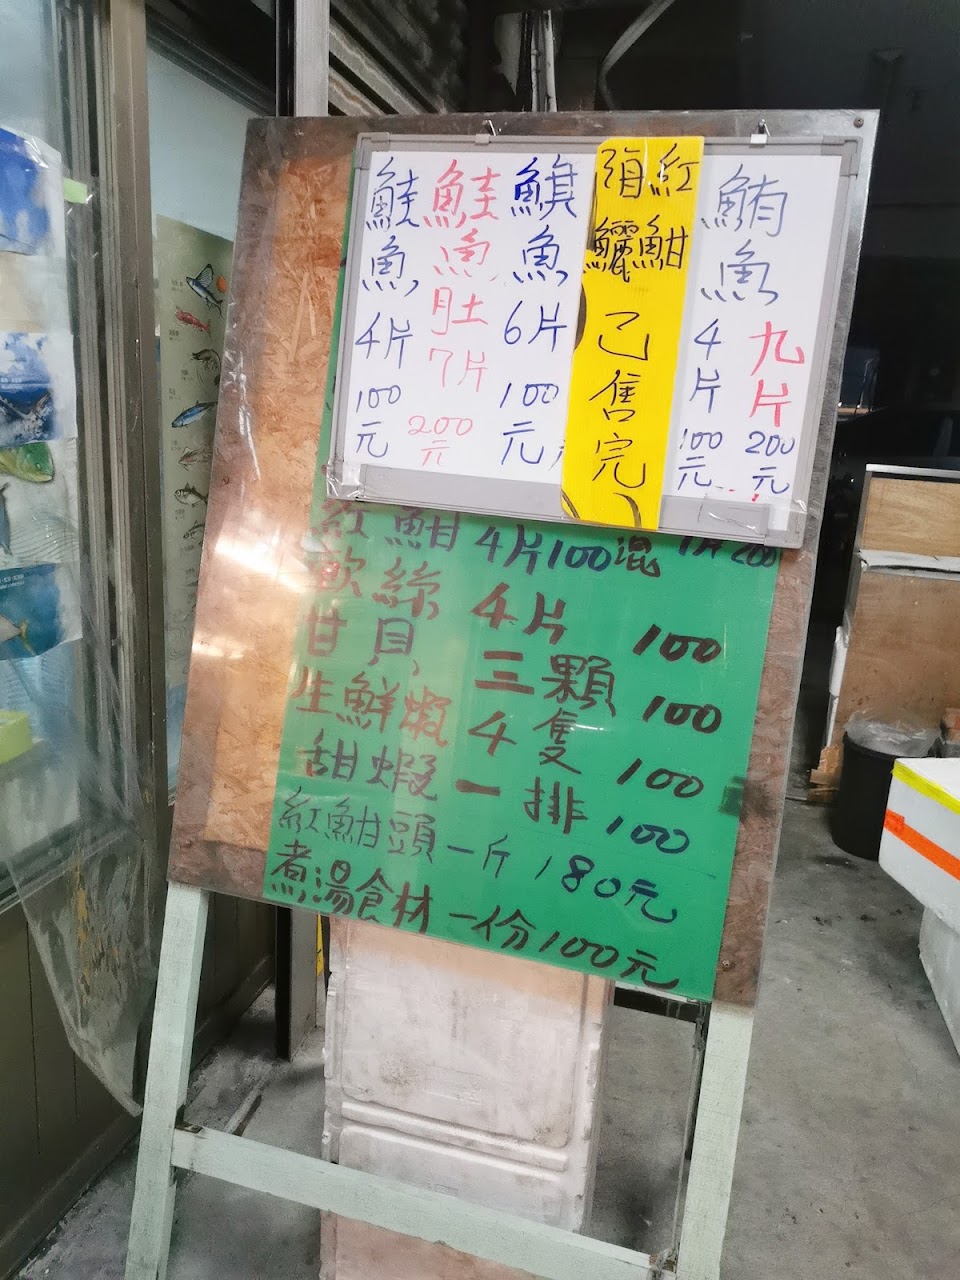 鮪魚4片100元
九片200元
紅魽
鱺
已售完
鯕魚6片100元
鮭魚肚7片200元
鮭魚4片100元
紅魽 4片100混 片200
軟絲 4片 100
甘貝 三顆 100
生鮮蝦 4隻 100
甜蝦 一排 100
紅魽頭 一斤 180元
煮湯食材 一份100元